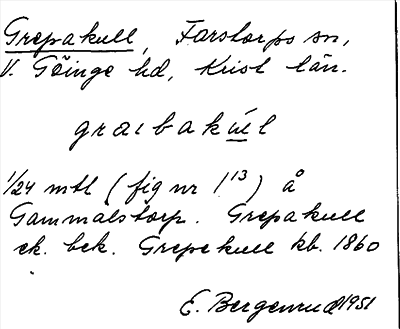 Grepakull, Farstorps sn,
V. Göinge hd, Krist län.
graibakúl
1/24 mtl (fig nr 1¹³) å
Gammalstorp. Grepakull
ek. bek. Grepekull kb. 1860
E. Bergenrud 1951